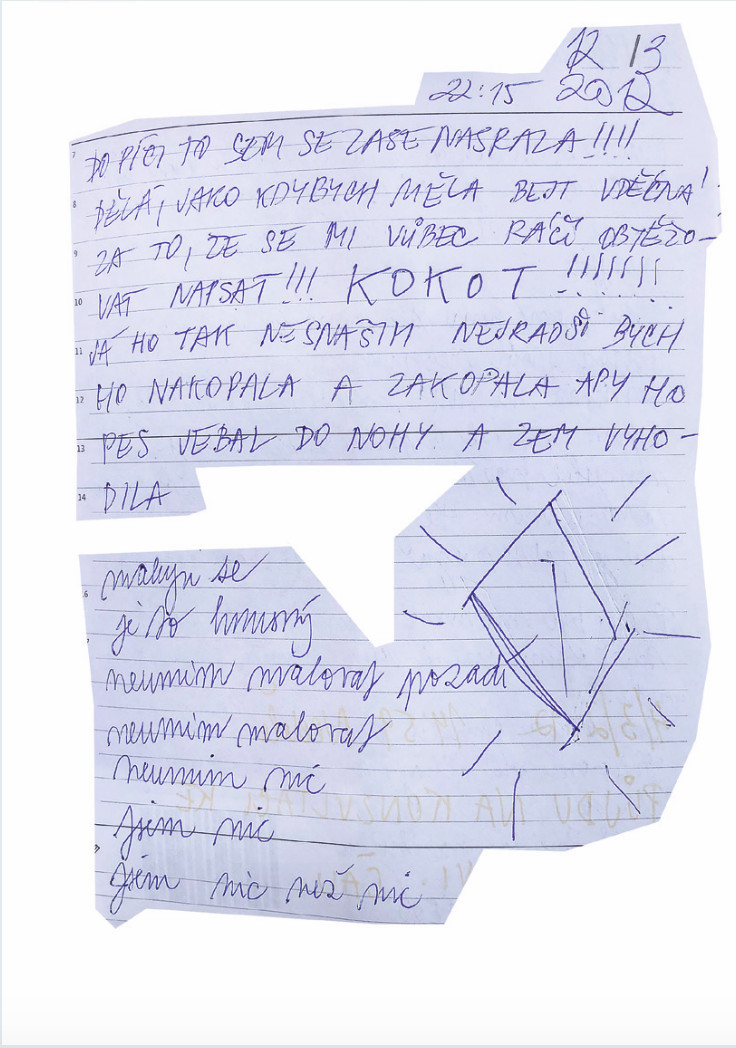 12 13
22:15 2012
DO PIČI TO SEM SE ZASE NASRALA!!!!
DĚLÁ, JAKO KDYBYCH MĚLA BEJT VDĚČNA!
ZA TO, ŽE SE MI VŮBEC RÁČÍ OBTĚŽO-
VAT NAPSAT!!! KOKOT !!!!!!!
JÁ HO TAK NESNAŠIM NEJRADŠI BYCH
HO NAKOPALA A ZAKOPALA ABY HO
PES VEBAL DO NOHY A ZEM VYHO-
DILA
maluju se
je to hnusný
neumim malovat pozadi
neumim malovat
neumim nic
jsem nic
jsem nic než nic
PŮJDU NA KONZULTACI KE